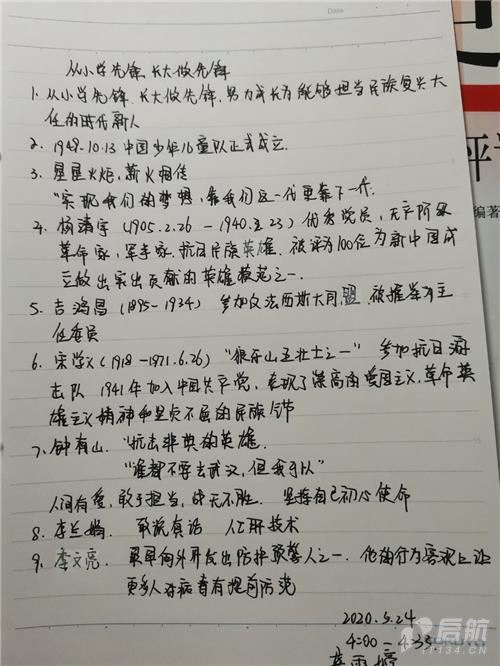 Date
从小学先锋 长大做先锋
1. 从小学先锋 长大做先锋,努力成长为能够担当民族复兴大
任的时代新人
2. 1949.10.13 中国少年儿童队正式成立
3. 星星火炬,薪火相传
"实现我们的梦想,靠我们这一代更靠下一代.
4. 杨靖宇 (1905.2.26 - 1940.2.23) 优秀党员,无产阶级
革命家,军事家.抗日民族英雄.被评为100位为新中国成
立做出突出贡献的英雄模范之一.
5. 吉鸿昌 (1895-1934) 参加反法西斯大同盟 被推举为主
任委员
6. 宋学义 (1918-1971.6.26) "狼牙山五壮士之一" 参加抗日游
击队 1941年加入中国共产党,表现了崇高的爱国主义.革命英
雄主义精神和坚贞不屈的民族气节
7. 钟有山. "抗击非典的英雄.
"谁都不要去武汉,但我可以"
人间有爱,敢于担当,战无不胜. 坚持自己初心使命
8. 李兰娟. 敢说真话 人工肝技术
9. 李文亮. 最早向外开发出防护预警人之一. 他的行为客观上让
更多人对病毒有提前防范
2020.5.24
4:00-4:35
评
编著
启航
11134.CN